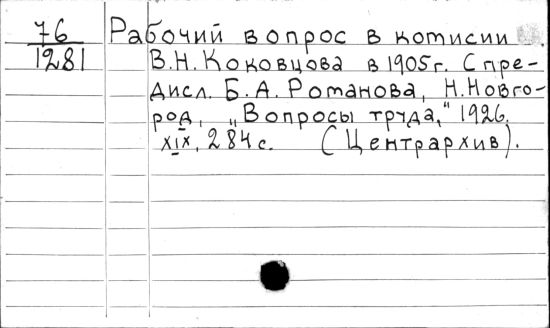 76 Рабочий вопрос в комисии
1281 В.Н. Коковцова в 1905г. С пре-
дисл. Б.А. Романова, Н.Новго-
род, „Вопросы труда," 1926.
XIX, 284 с. (Центрархив).